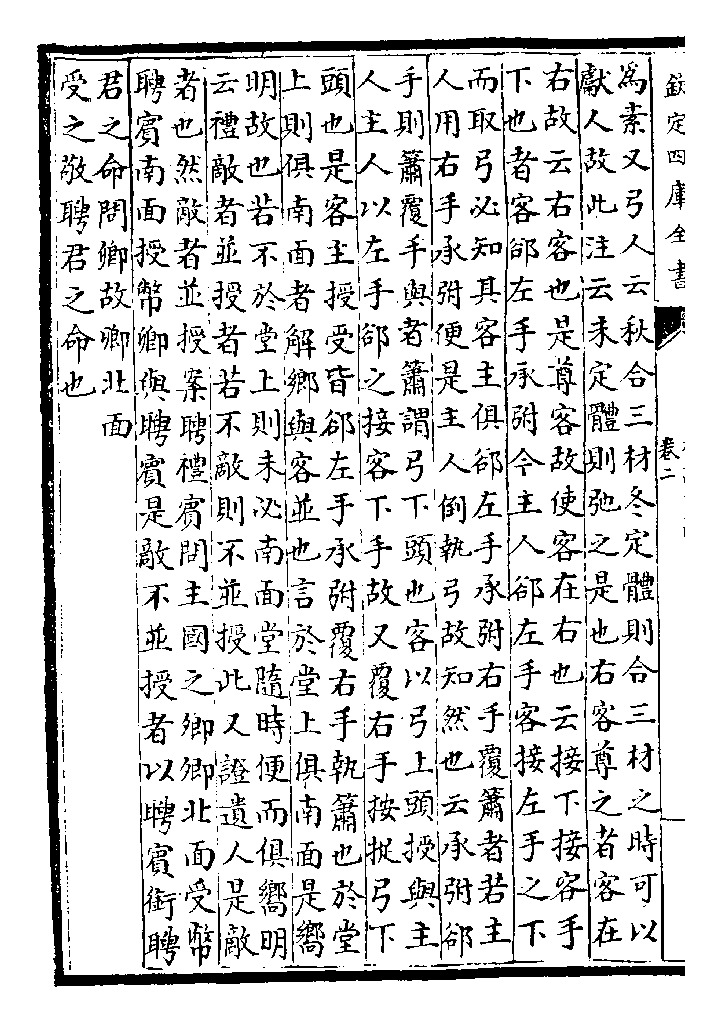 欽定四庫全書
卷二
為素又弓人云秋合三材冬定體則合三材之時可以
獻人故此注云未定體則弛之是也右客尊之者客在
右故云右客也是尊客故使客在右也云接下接客手
下也者客郤左手承弣今主人郤左手客接左手之下
而取弓必知其客主俱郤左手承弣右手覆簫者若主
人用右手承弣便是主人倒執弓故知然也云承弣郤
手則簫覆手與者簫謂弓下頭也客以弓上頭授與主
人主人以左手郤之接客下手故又覆右手按捉弓下
頭也是客主授受皆郤左手承弣覆右手執簫也於堂
上則俱南面者解鄉與客並也言於堂上俱南面是嚮
明故也若不於堂上則未必南面堂隨時便而俱嚮明
云禮敵者並授者若不敵則不並授此又證遺人是敵
者也然敵者並授案聘禮賓問主國之卿卿北面受幣
聘賓南面授幣卿與聘賓是敵不並授者以聘賓銜聘
君之命問卿故卿北面
受之敬聘君之命也